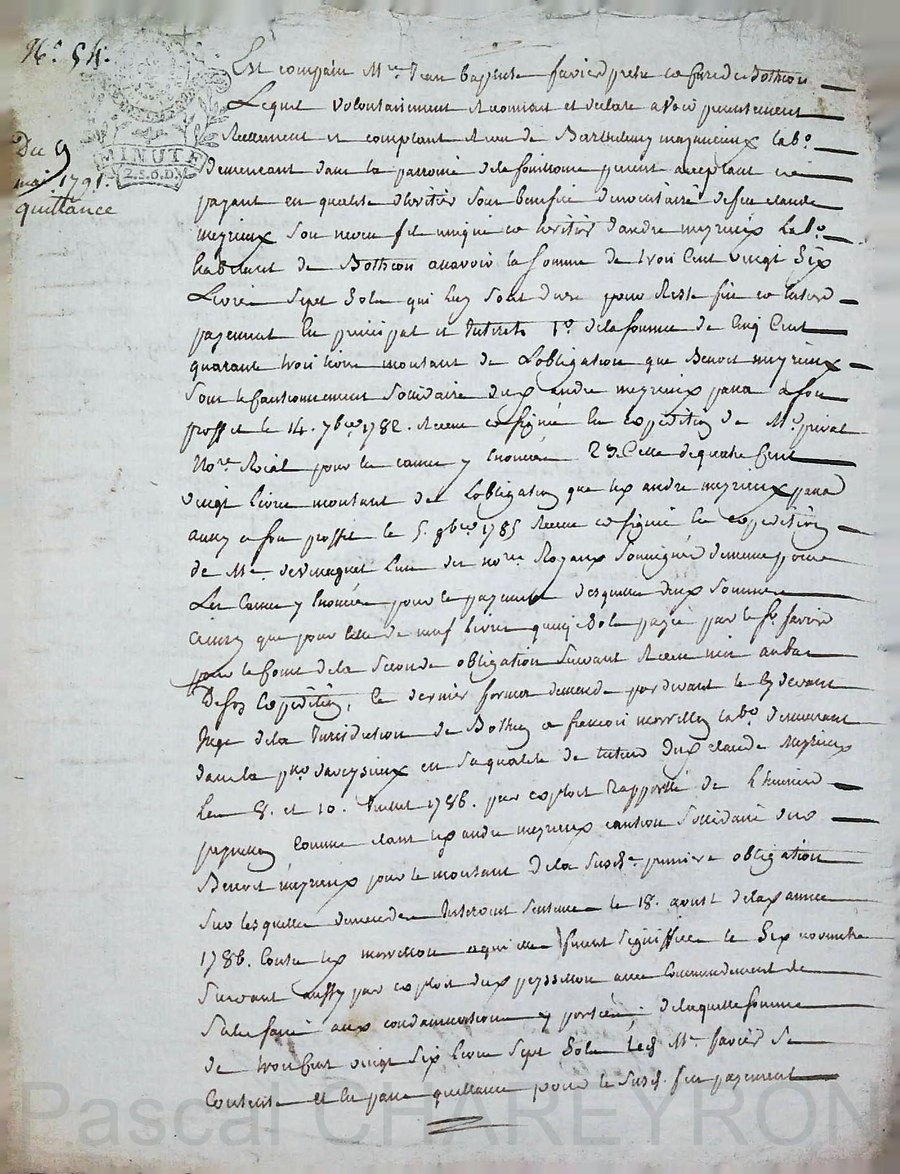 N.° 54.
MINUTE
2.S.6.D.
Du 9
mai 1791.
quittance
Est comparu M.re Jean Baptiste favier pretre et curé de Bothéon
Lequel volontairement a reconnu et declaré avoir presentement
Reellement et comptant Receu de Barthelemy meyrieux lab.r
Demeurant dans la parroisse de la fouillouse present acceptant et
payant en qualité d'heritier sous benefice d'inventaire de feu claude
meyrieux son neveu fils unique et heritier d'andré meyrieux lab.r
habitant de Bothéon a savoir la somme de trois Cent vingt Six
Livres Sept Sols qui luy sont dues pour Reste fin et entier
payement en principal et Interets 1.° de la somme de Cinq Cent
quarante trois livres montant de L'obligation que Benoit meyrieux
Sous le Cautionnement Solidaire dud andré meyrieux passa a son
proffit le 14. 7bre 1782. Receue et signée en expedition de M.e privat
No.re Roial pour les causes y Enoncées 2.° de Celle de quatre Cent
vingt livres montant de L'obligation que led andré meyrieux passa
aussy a son proffit le 5. 9bre 1785 Receue et signée en expedition
de M.e devincognet l'un des no.res Royaux Soussignés pour
Les Causes y Enoncées pour le payement desquelles deux Sommes
ainsy que pour Celle de neuf Livres quinze Sols payée par le S.r favier
pour le Cout de la Seconde obligation Suivant Receu mis au bas
De son Expedition, Ce dernier forma demande par devant le cy devant
Juge de la Jurisdiction de Bothéon a francois morillon lab.r demeurant
dans la p.sse daveysieux en Sa qualité de tuteur dud claude Meyrieux
les 8. et 10. Juillet 1786. par exploit Rapporté de L'huissier
peyssellon Comme etant led andré meyrieux caution Solidaire dud
Benoit meyrieux pour le montant de la Susd.e premiere obligation
Sur lesquelles demandes Intervint Sentence le 18. aoust de lad année
1786. Contre led morillon a qui elle fut Signiffiée le Six novembre
Suivant aussy par exploit dud peyssellon avec Commandement de
Satisfaire aux condamnations y portées, de laquelle somme
de trois Cent vingt Six livres Sept Sols led M.re favier Se
Contente et en passe quittance pour le Susd. fin payement
Pascal CHAREYRON